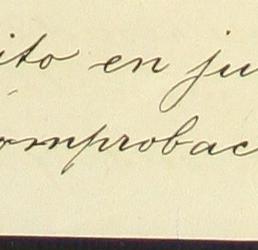 ito en ju
omprobac